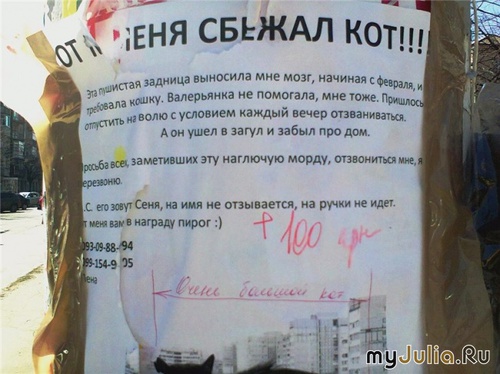 ОТ МЕНЯ СБЕЖАЛ КОТ!!!!
Эта пушистая задница выносила мне мозг, начиная с февраля, и
требовала кошку. Валерьянка не помогала, мне тоже. Пришлось
отпустить на волю с условием каждый вечер отзваниваться.
А он ушел в загул и забыл про дом.
Просьба всех, заметивших эту наглючую морду, отзвониться мне, я
перезвоню.
.С. его зовут Сеня, на имя не отзывается, на ручки не идет.
от меня вам в награду пирог :) + 100 грн
093-09-88- 94
099-154-9 05
ена
Очень большой кот
myJulia.Ru